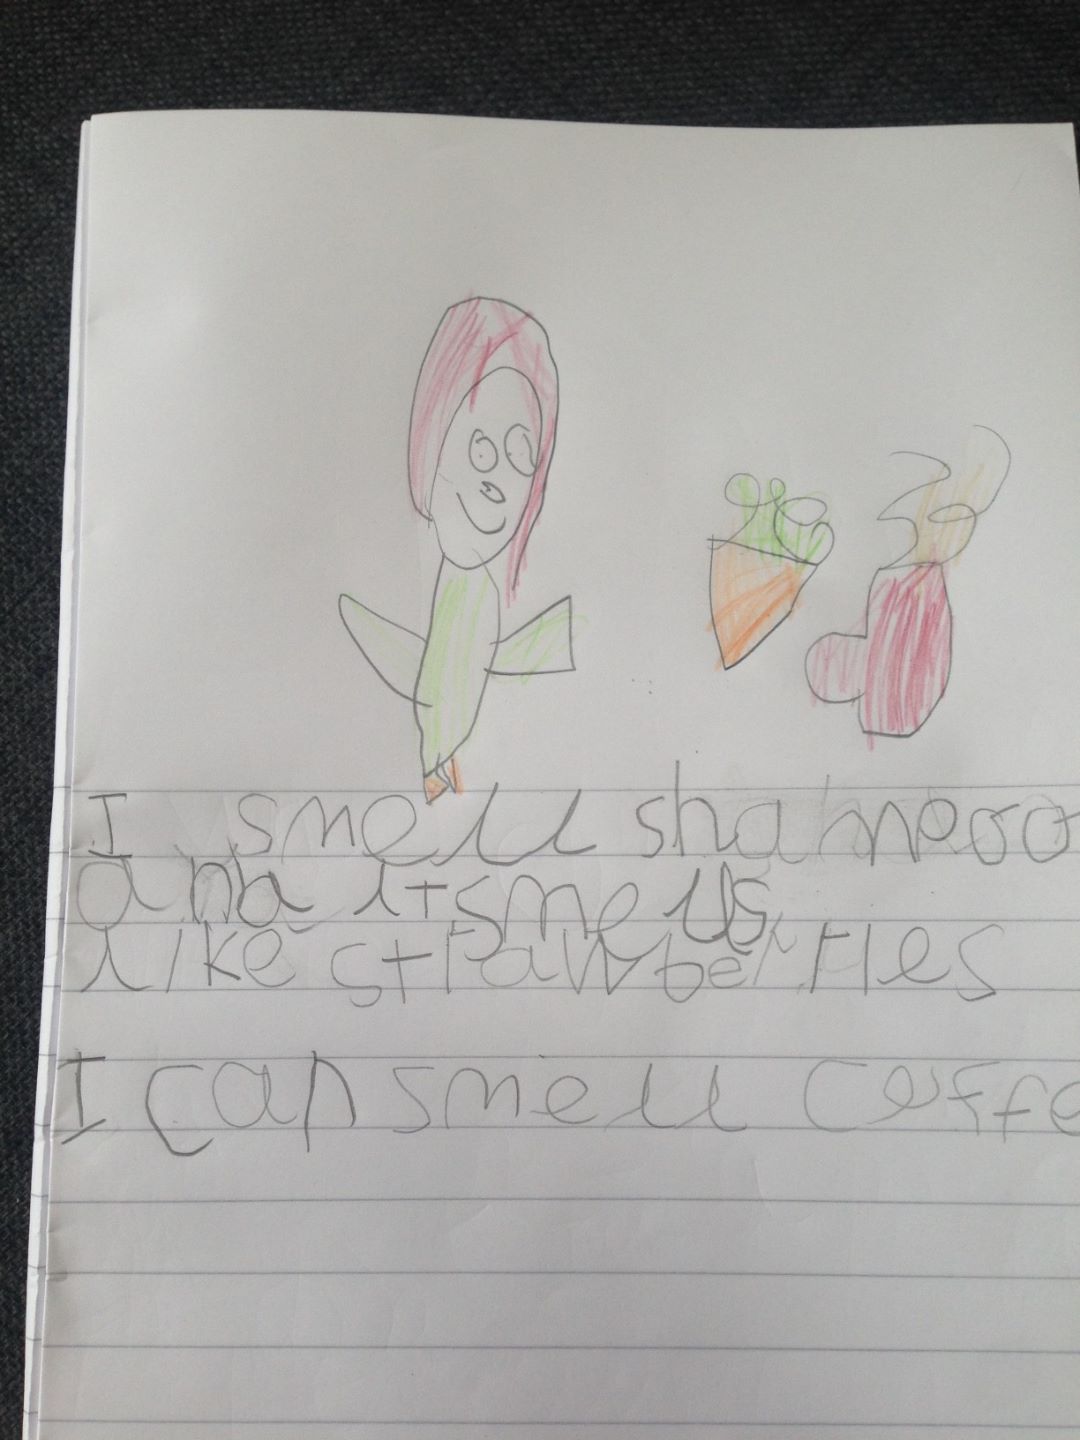 I smell shampoo
and it smells
like strawberries
I can smell coffe